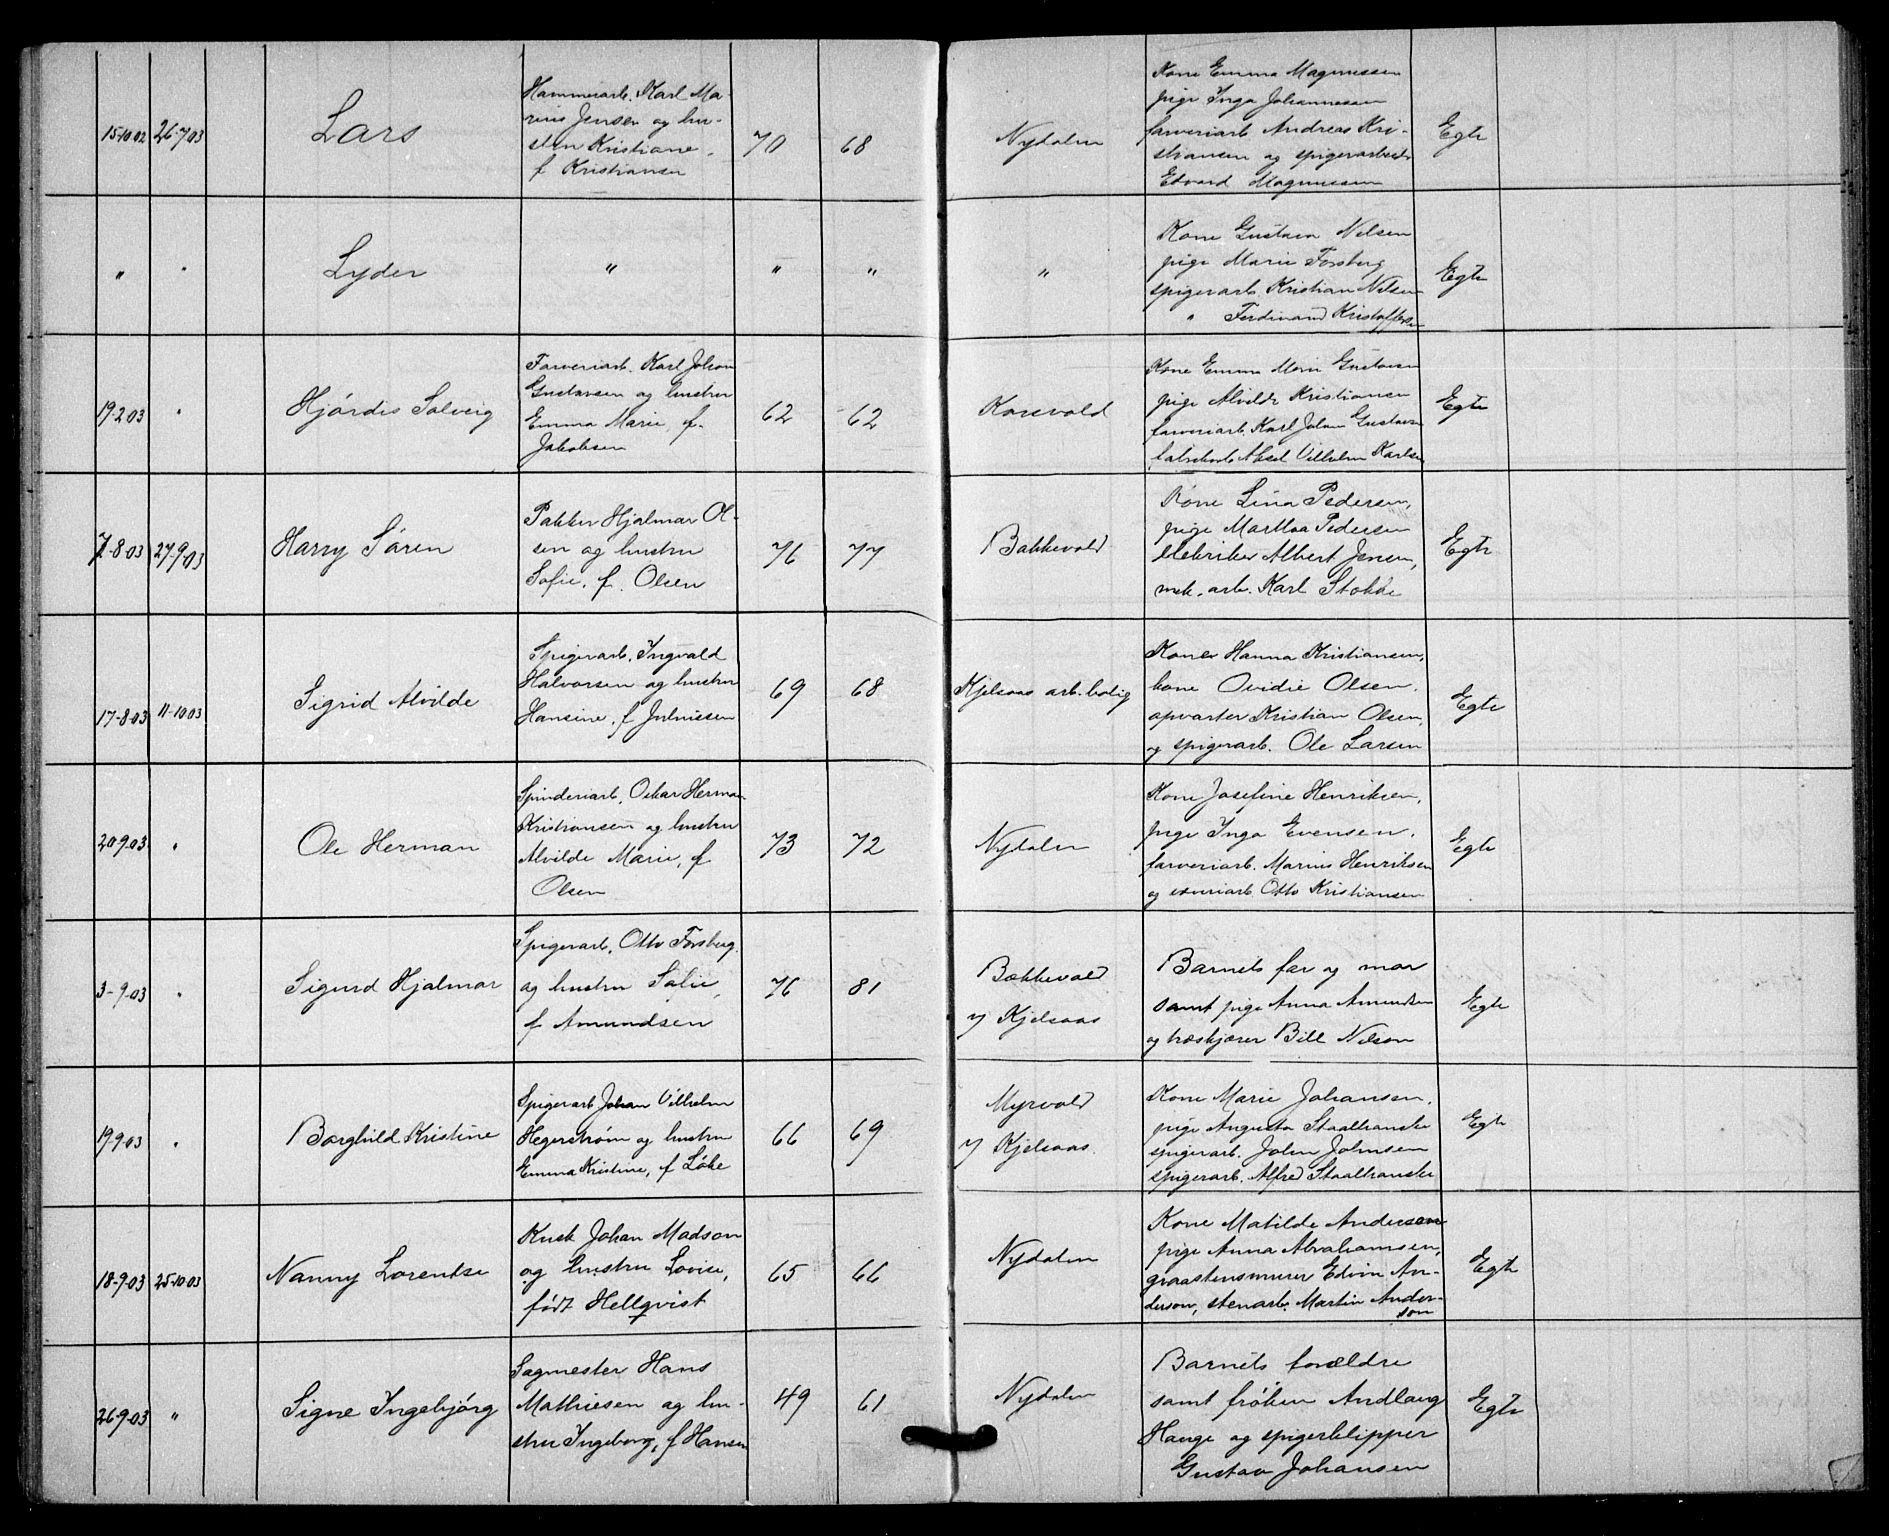 15-10 02 26-7 03 Lars
Hammerarb. Karl Ma-
rius Jensen og hu-
stru Kristiane,
f Kristiansen
70 68 Nydalen
Kone Emma Magnussen
pige Inga Johannessen
farveriarb Andreas Kri-
stiansen og spigerarbeider
Edvard Magnussen
Egte
" " Lyder " " " "
Kone Gustava Nilsen
pige Marie Forsberg
spigerarb Kristian Nilsen
" Ferdinand Kristoffersen
Egte
19-2 03 " Hjórdis Solveig
Farveriarb. Karl Johan
Gustavsen og hustru
Emma Marie, f.
Jakobsen
62 62 Korsvold
Kone Emma Marie Gustavsen
pige Alvilde Kristiansen
farveriarb. Karl Johan Gustavsen
fabrikarb Aksel Vilhelm Karlsen
Egte
7-8-03 27-9-03 Harry Sóren
Pakker Hjalmar Ol-
sen og hustru
Sofie, f. Olsen
76 77 Bakkevold
Kone Lina Pedersen,
pige Martha Pedersen
elektriker Albert Jensen,
mek. arb. Karl Stokke
Egte
17-8-03 11-10 03 Sigrid Alvilde
Spigerarb. Ingvald
Halvorsen og hustru
Hansine, f Juliussen
69 68 Kjelsaas arb. bolig
Kone Hanna Kristiansen,
kone Ovidie Olsen,
opvarter Kristian Olsen,
og spigerarb. Ole Larsen
Egte
20-9-03 " Ole Herman
Spinderiarb, Oskar Herman
Kristiansen og hustru
Alvilde Marie, f
Olsen
73 72 Nydalen
Kone Josefine Henriksen,
pige Inga Evensen,
farveriarb. Marius Henriksen
og væveriarb Otto Kristiansen
Egte
3-9-03 " Sigurd Hjalmar
Spigerarb, Otto Forsberg
og hustru Sofie,
f Amundsen
76 81
Bakkevold
v/ Kjelsaas
Barnets far og mor
samt pige Anna Amundsen
og træskjærer Bill Nilsen
Egte
19-9-03 " Borghild Kristine
Spigerarb Johan Vilhelm
Hegerstrøm og hustru
Emma Kristine, f Lóke
66 69
Myrvold
v/ Kjelsaas
Kone Marie Johansen,
pige Augusta Staalhanske
spigerarb. John Johnsen
spigerarb. Alfred Staalhanske
Egte
18-9-03 25-10 03 Nanny Lorentse
Kusk Johan Madson
og hustru Lovise,
født Hellqvist
65 66 Nydalen
Kone Matilde Anderson
pige Anna Abrahamsen,
graastensmurer Edvin An-
derson, stenarb. Martin Ander-
son
Egte
26-9-03 " Signe Ingebjórg
Sagmester Hans
Mathiesen og hu-
stru Ingeborg, f Hansen
49 61 Nydalen
Barnets forældre
samt fróken Andlaug
Hauge og spigerklipper
Gustav Johansen
Egte